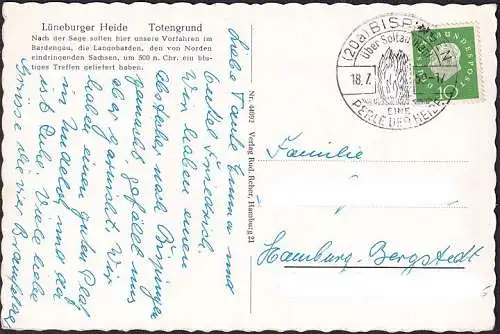 Lüneburger Heide Totengrund
Nach der Sage sollen hier unsere Vorfahren im
Bardengäu, die Langobarden, den von Norden
eindringenden Sachsen, um 500 n. Chr. ein blu-
tiges Treffen geliefert haben.
(20a) BISPINGEN
über Soltau
18.7.
EINE
PERLE DER HEIDE
10
Nr. 44692 Verlag Rud. Reher, Hamburg 21
Liebe Tante Emma und
Onkel Friedrich.
Wir haben einen
Abstecher nach Bispingen
gemacht gefällt uns
aber gar nicht. Wir
haben einen guten Platz
in Undeloh und
Ruh. Viele liebe
Grüsse die vier
Familie
Hamburg-Bergstedt